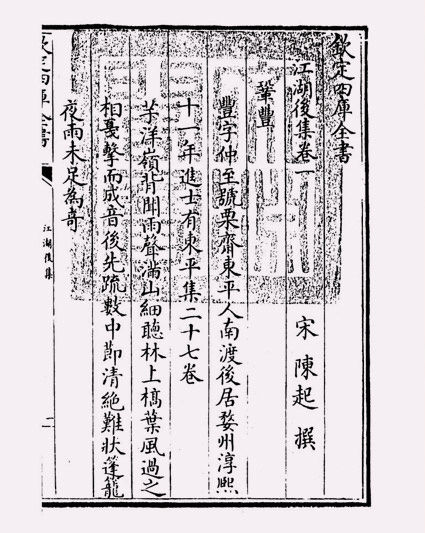 欽定四庫全書
江湖後集卷一
宋 陳起 撰
鞏豐
豐字仲至號栗齋東平人南渡後居婺州淳熙
十一年進士有東平集二十七卷
芹洋嶺背聞雨聲滿山細聽林上槁葉風過之
相戞擊而成音後先疏數中節清絶難狀蓬籠
夜雨未足為奇
欽定四庫全書
江湖後集